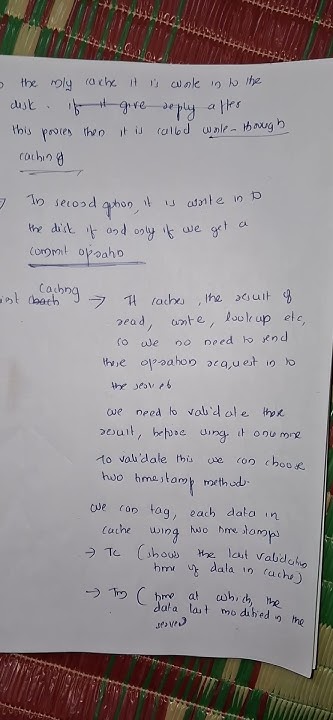 the only cache it is write in to the
disk. if it give reply after
this proces then it is called write-though
caching
In second option, it is write in to
the disk if and only if we get a
commit opsatio
caching
→ It caches, the result of
read, write, lookup etc,
so we no need to send
these opsation request in to
the server
we need to validate these
result, before using it one more
To validate this we can choose
two timestamp method.
we can tag, each data in
cache using two time stamps
→ Tc (shows the last validation
time of data in cache)
→ Tm ( time at which, the
data last modified in the
server